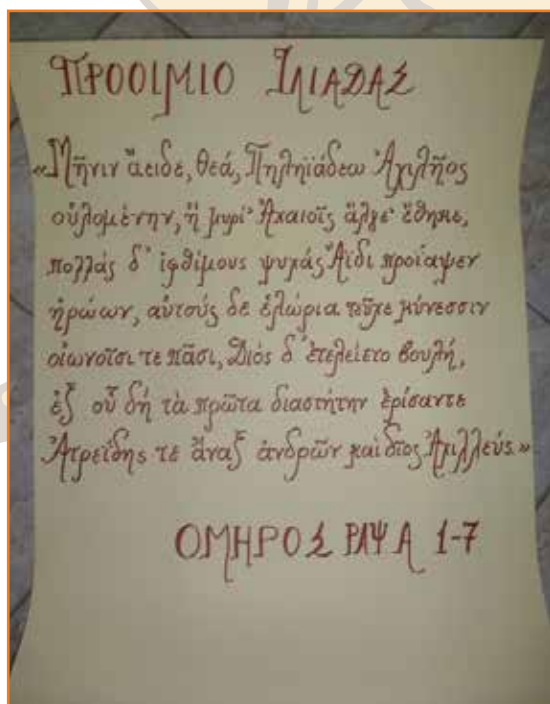 ΠΡΟΟΙΜΙΟ ΙΛΙΑΔΑΣ
«Μῆνιν ἄειδε, θεά, Πηληϊάδεω Ἀχιλῆος
οὐλομένην, ἥ μυρί' Ἀχαιοῖς ἄλγε' ἔθηκε,
πολλάς δ' ἰφθίμους ψυχάς Ἄϊδι προΐαψεν
ἡρώων, αὐτούς δε ἑλώρια τεῦχε κύνεσσιν
οἰωνοῖσι τε πᾶσι, Διός δ' ἐτελείετο βουλή,
ἐξ οὗ δή τὰ πρῶτα διαστήτην ἐρίσαντε
Ἀτρείδης τε ἄναξ ἀνδρῶν καὶ δῖος Ἀχιλλεύς.»
ΟΜΗΡΟΣ ΡΑΨ Α 1-7